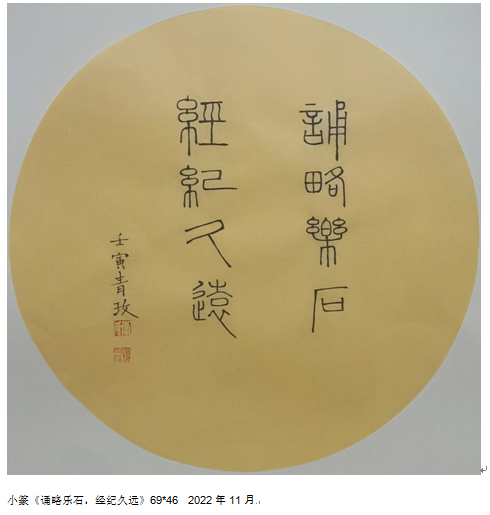 誦略樂石
經紀久遠
壬寅青孜
小篆《诵略乐石，经纪久远》69*46 2022年11月.